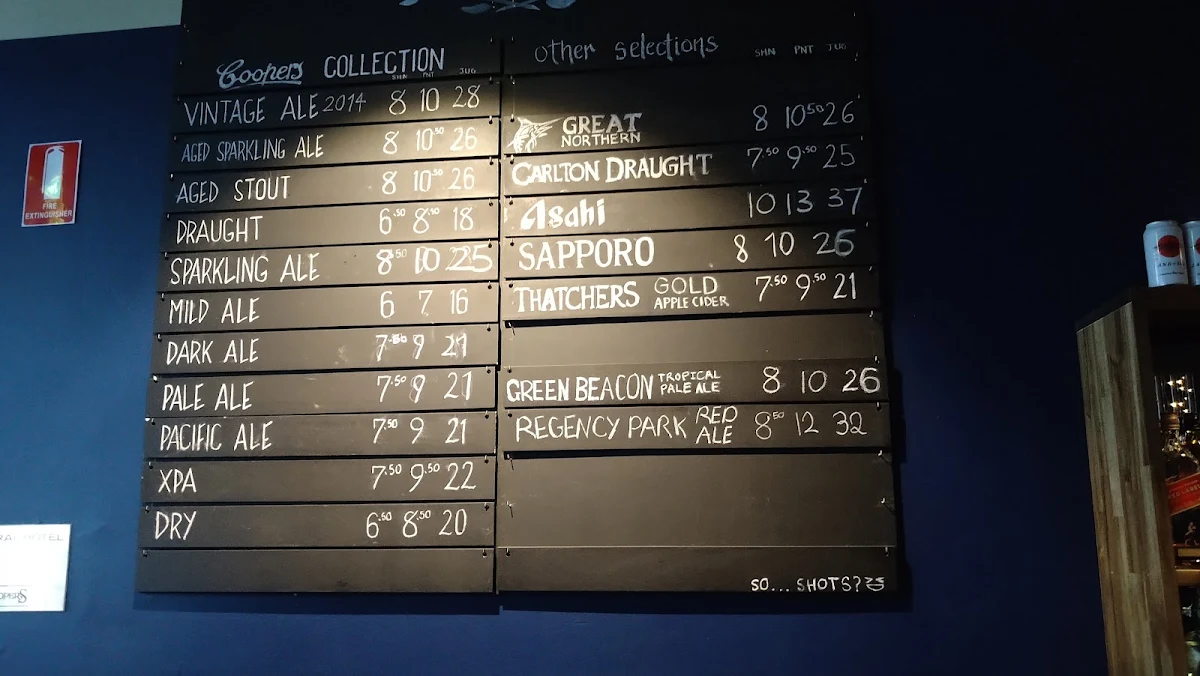 Coopers COLLECTION
SHN PNT JUG
VINTAGE ALE 2014 8 10 28
AGED SPARKLING ALE 8 10.50 26
AGED STOUT 8 10.50 26
DRAUGHT 6.50 8.50 18
SPARKLING ALE 8.50 10 25
MILD ALE 6 7 16
DARK ALE 7.50 9 21
PALE ALE 7.50 9 21
PACIFIC ALE 7.50 9 21
XPA 7.50 9.50 22
DRY 6.50 8.50 20
other selections SHN PNT JUG
GREAT
NORTHERN 8 10.50 26
CARLTON DRAUGHT 7.50 9.50 25
Asahi 10 13 37
SAPPORO 8 10 26
THATCHERS GOLD
APPLE CIDER 7.50 9.50 21
GREEN BEACON TROPICAL
PALE ALE 8 10 26
REGENCY PARK RED
ALE 8.50 12 32
SO... SHOTS?
FIRE
EXTINGUISHER